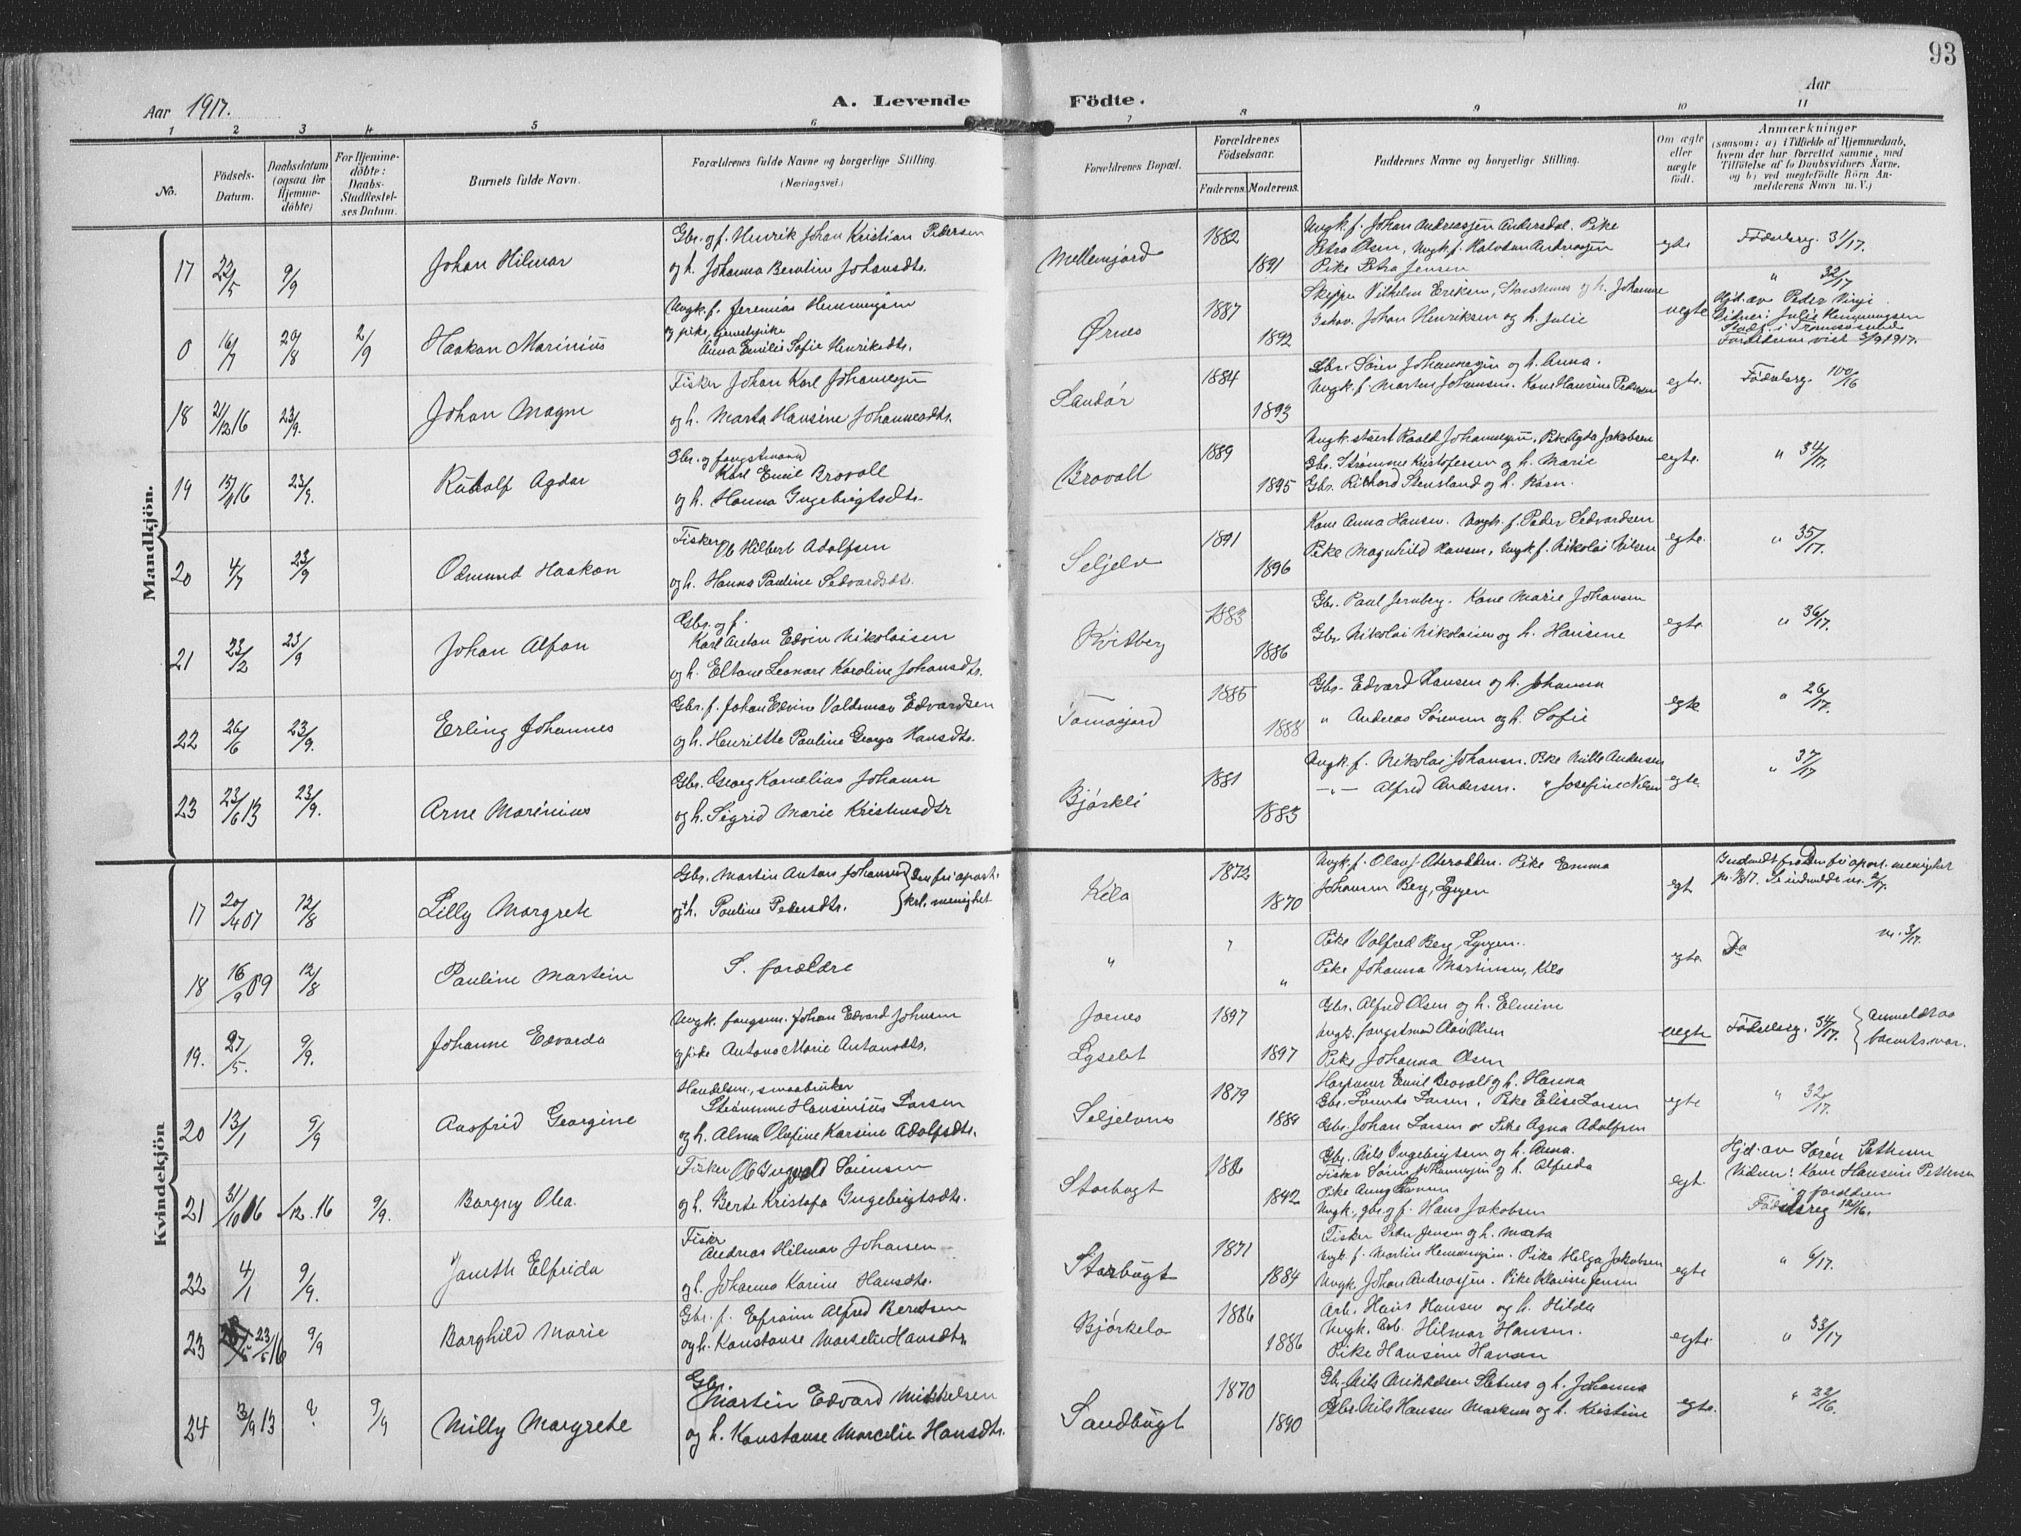 93
Aar 1917.
A. Levende Födte.
Aar
1 2 3 4 5 6 7 8 9 10 11
No.
Födsels-Datum.
Daabsdatum (ogsaa for Hjemme-döbte)
For Hjemme-döbte: Daabs-Stadfæstel-ses Datum.
Barnets fulde Navn.
Forældrenes fulde Navne og borgerlige Stilling.
(Næringsvei.)
Forældrenes Bopæl.
Forældrenes Födselsaar.
Faderens. Moderens.
Faddernes Navne og borgerlige Stilling.
Om ægte eller uægte födt.
Anmærkninger
(saasom: a) i Tilfælde af Hjemmedaab, hvem der har forrettet samme, med Tilföielse af to Daabsvidners Navne, og b) ved uægtefödte Börn An-melderens Navn m. V.)
Mandkjön.
17 22/5 9/9 Johan Hilmar
Gbr. og f. Henrik Johan Kristian Pedersen
og h. Johanna Berntine Johansdtr.
Mellemjord 1882 1891
Ungk. f. Johan Andreassen Andersdal. Pike
Petra Olsen, Ungk. f. Halvdan Andreassen
Pike Petra Jensen
egte Födselsreg. 31/17.
0 16/7 20/8 2/9 Haakon Marinius
Ungk. f. Jeremias Hemmingsen
og pike, tjenestpike
Anna Emilie Sofie Henriksdtr.
Ørnes 1887 1892
Vilhelm Eriksen, og h. Johanne
Johan Henriksen og h. Julie
uegte " 32/17
Hjd. av Peder
Vidner: Julie Hemmingsen
Stadf. i Tromsösund
18 21/12 16 23/9. Johan Magne
Fisker Johan Karl Johannessen
og h. Marta Hansine Johannesdtr.
Sandør 1884 1893
Gbr. Sören Johannessen og h. Anna.
Ungk. f. Morten Johansen. Kone Hansine Pedersen
egte. Födselsreg. 100/16
19 16 23/9. Rudolf Agdar
Gbr. og fangstmand
Karl Emil Brovoll
og h. Hanna Ingebrigtsdtr.
Brovoll 1889 1895
Ungk. Roald Johannessen. Pike Agda Jakobsen
Gbr. Strömme Kristofersen og h. Marie
Gbr. Rikhard Stensland og h. Karn.
egte. " 34/17.
20 4/7 23/9 Odmund Haakon
Fisker Ole Hilbert Adolfsen
og h. Hanna Pauline Sedvardsdtr.
Seljelv 1891 1896
Kone Anna Hansen. Ungk. f. Peder Sedvardsen
Pike Magnhild Hansen, Ungk. f. Nikolai Nilsen
egte. " 35/17.
21 23/2 23/9 Johan Alfon
Gbr. og f.
Karl Anton Edvin Nikolaisen
og h. Eltane Leonore Karoline Johansdtr.
Kvitberg 1883 1886
Gbr. Paul Jernberg. Kone Marie Johansen
Gbr. Nikolai Nikolaisen og h. Hansine
egte. " 36/17.
22 26/6 23/9. Erling Johannes
Gbr. f. Johan Edvin Valdemar Edvardsen
og h. Henriette Pauline Georga Hansdtr.
Tomasjord 1885 1888
Gbr. Edvard Hansen og h. Johanna
" Andreas Sörensen og h. Sofie
egte. " 26/17.
23 23/6 13 23/9. Arne Marinius
Gbr. Georg Kornelius Johansen
og h. Sigrid Marie Kristensdtr
Bjørkli 1881 1883
Ungk. f. Nikolai Johansen. Pike Nille Andersen
— " — Alfred Andersen. " Josefine Nilsen
egte. " 37/17
Kvindekjön
17 20/4 07 12/8 Lilly Margrete
Gbr. Martin Anton Johansen } Den fri apost.
og h. Pauline Pedersdtr. } kr. menighet
Kila 1872 1870
Ungk. f. Olav Pike Emma
Johansen Berg, Lyngen
egte Indmeldt fra Den fri apost. menighet
18 16/9 09 12/8 Pauline Martein
S. forældre
" " "
Pike Valfred Berg, Lyngen.
Pike Johanna Martinsen, Kila
egte. Do nr. 3/17.
19. 27/5. 9/9. Johanne Edvarda
Ungk. fangsm. Johan Edvard Johnsen
og pike Antona Marie Antonsdtr.
Jøvnes
Lyselet 1897 1897
Gbr. Alfred Olsen og h. Elmine
Ungk. fangstmand Olsen
Pike Johanna Olsen
uegte Födselsreg. 34/17. Anmeldt av
barnets mor.
20 13/1 9/9 Aasfrid Georgine
Handelsm., smaabruker
Strømme Hansinius Larsen
og h. Alma Olufine Karsine Adolfsdtr.
Seljelvnes 1879 1889
Emil Brovoll og h. Hanna
Gbr. Larsen, Pike Elise Larsen
Gbr. Johan Larsen Pike Agna Adolfsen
egte " 32/17.
21 31/10 06 /12.16 9/9. Borgny Olea
Fisker Ole Ingvald Sörensen
og h. Berte Kristofa Ingebrigtsdtr.
Storbugt 188 1842
Gbr. Nils Ingebrigtsen og h. Anna.
Fisker Sören Johannessen og h. Alfreda
Pike Anny
Ungk, gbr. og f. Hans Jakobsen
egt. Hjd. av Sören Pettersen
Vidner: Kone Hansine Pettersen
og forældrene
Födselsreg 121/16.
22 4/1 9/9. Janeth Elfrida
Fisker
Andreas Hilmar Johansen
og h. Johanna Karine Hansdtr.
Storbugt 1871 1884
Fisker Peter Jensen og h. Marta
Ungk. f. Martin Hemmingsen. Pike Helga Jakobsen
Ungk. Johan Andreassen. Pike Klarisse Jensen
egte " 6/17.
23 23/5 16 9/9 Borghild Marie
Gbr. f. Efraim Alfred Berntsen
og h. Konstanse Marselie Hansdtr.
Bjørkelo 1886 1886
Arb. Hans Hansen og h. Hilda
Ungk. Arb. Hilmar Hansen.
Pike Hansine Hansen
egte. " 33/17
24 3/9 13 ? 9/9 Milly Margrete
Gbr.
Martin Edvard Mikkelsen
og h. Konstanse Marcelie Hansdtr.
Sandbugt 1870 1890
Gbr. Nils Mikkelsen Sletnes og h. Johanna
Gbr. Nils Hansen Marknes og h. Kristine
egte. " 22/16.